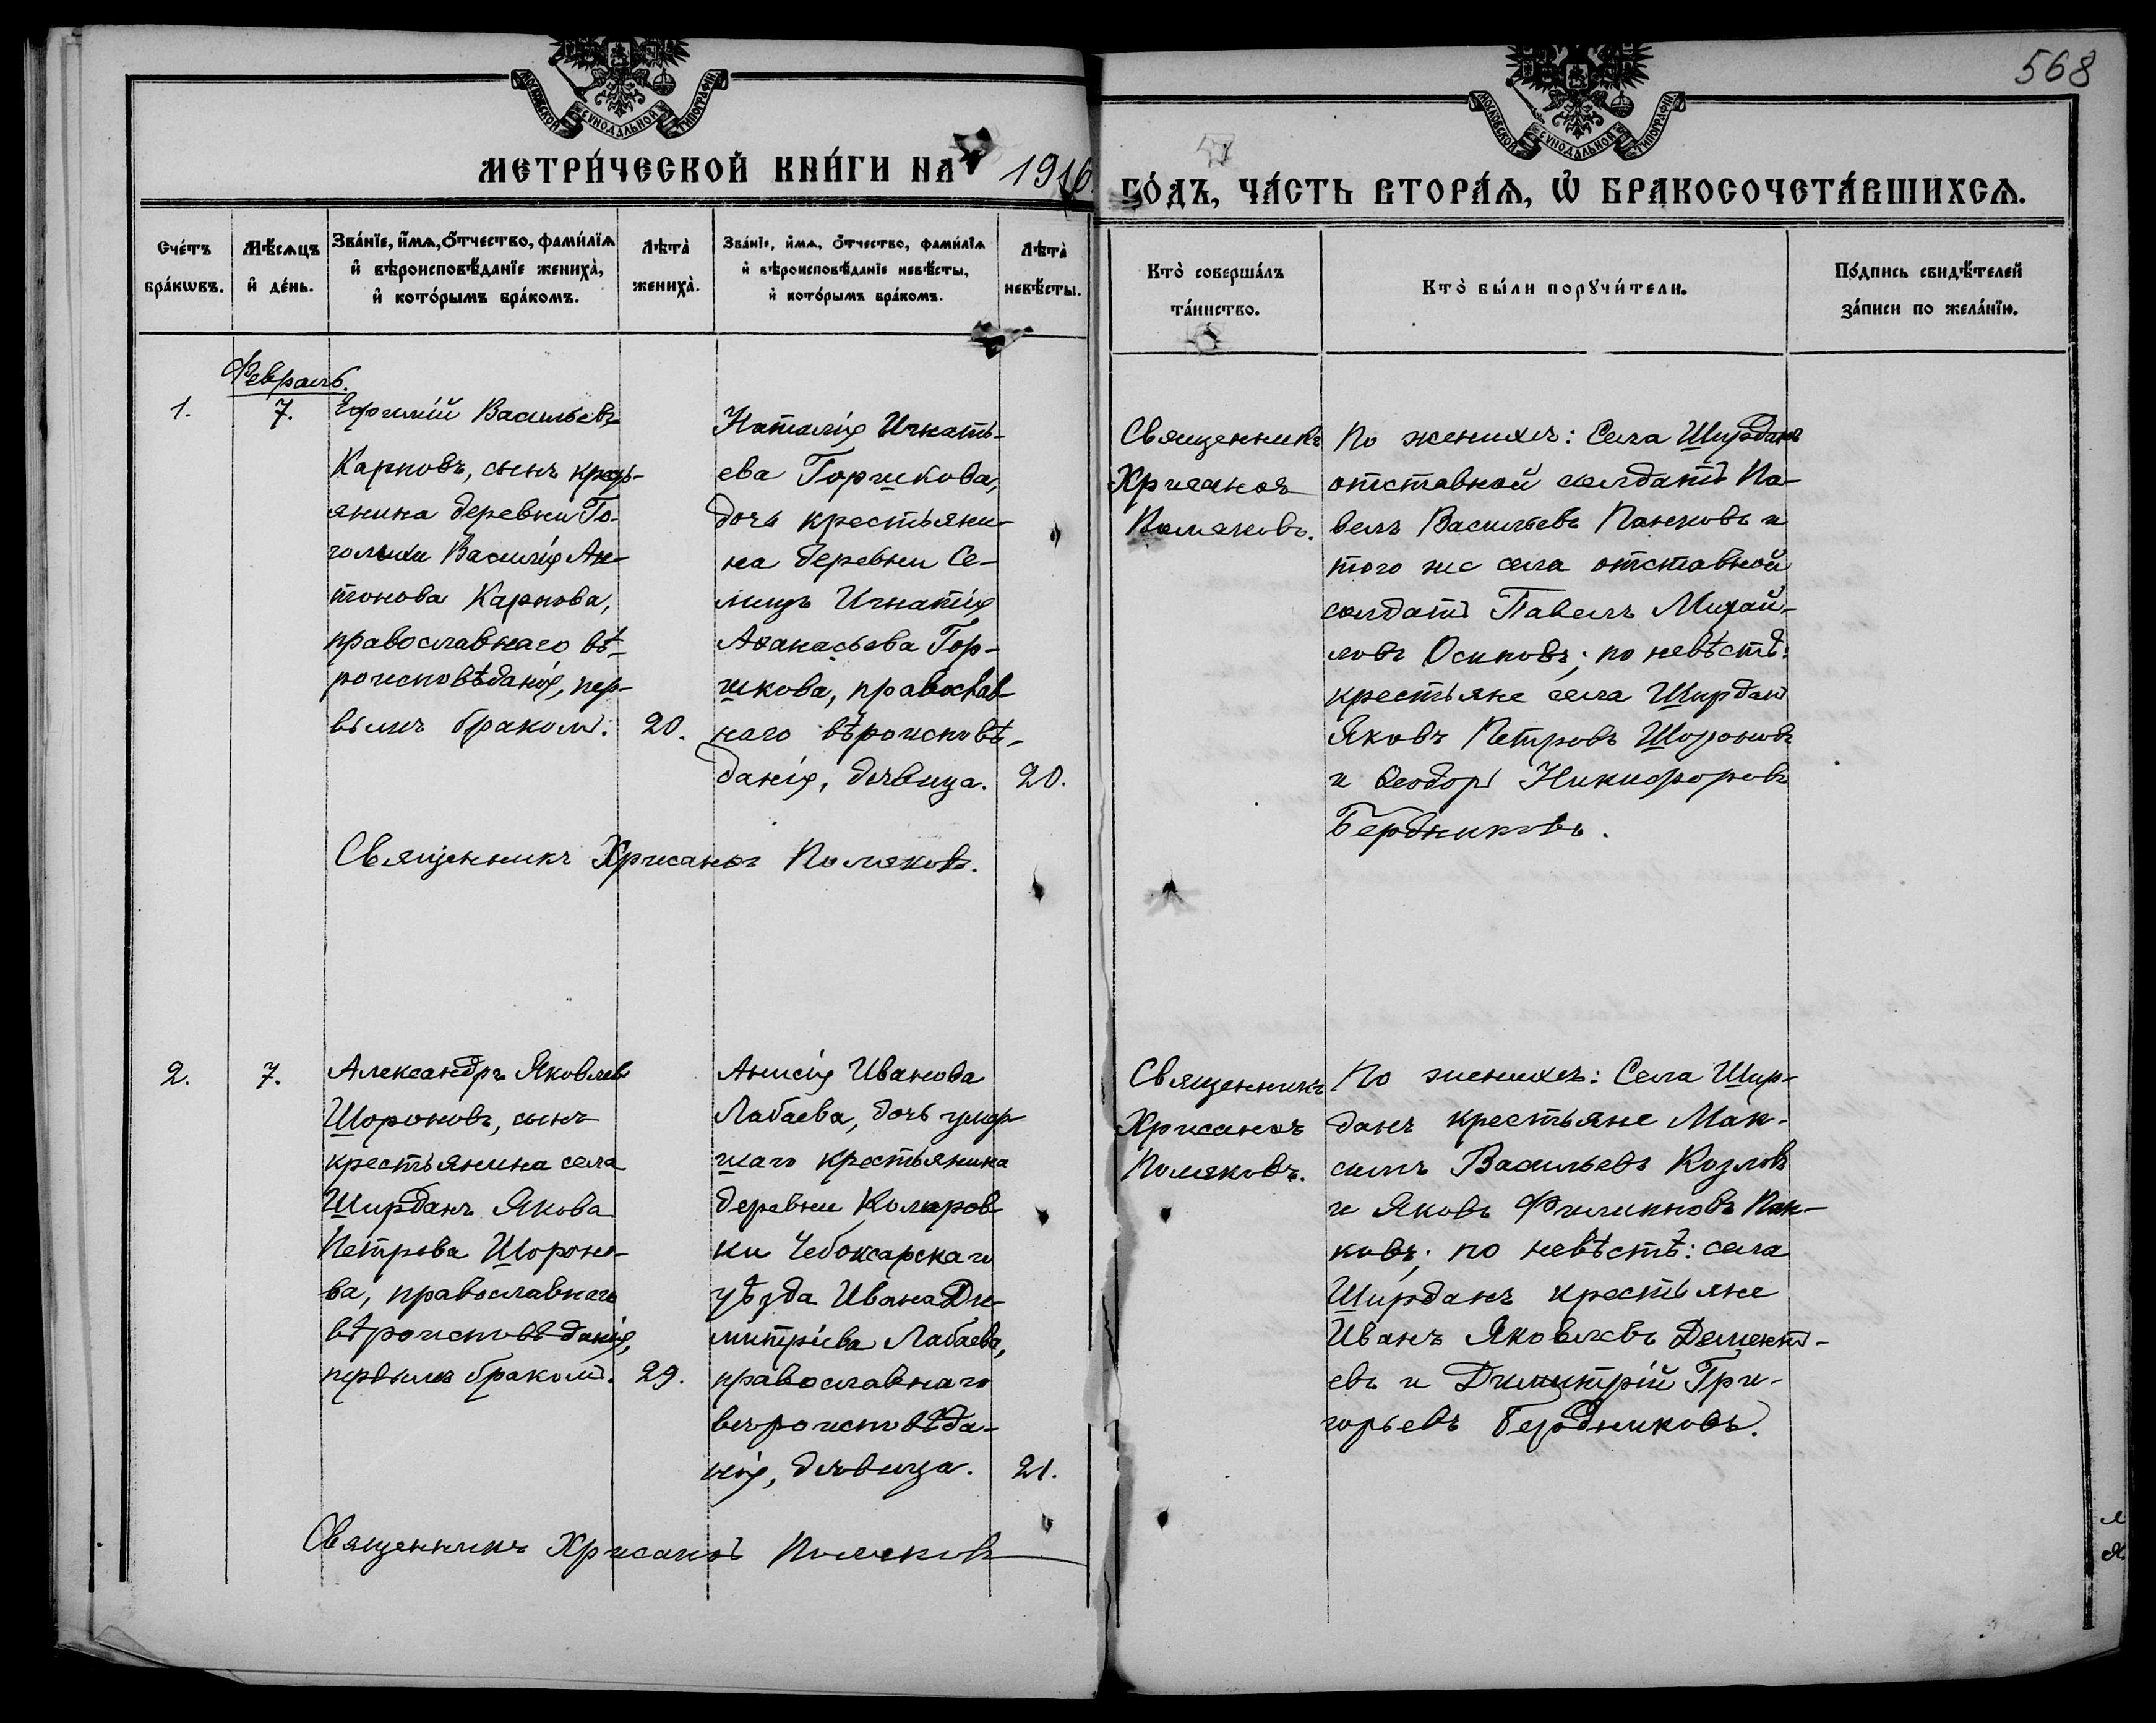 568
МОСКОВСКОЙ СѴНОДАЛЬНОЙ ТИПОГРАФІИ
МОСКОВСКОЙ СѴНОДАЛЬНОЙ ТИПОГРАФІИ
МЕТРИ́ЧЕСКОЙ КНИ́ГИ НА 1916 ГО́ДЪ, ЧА́СТЬ ВТОРА́Ѧ, Ѽ БРАКОСОЧЕТА́ВШИХСѦ.
Сче́тъ
бра́кѡвъ.
Мѣ́сѧцъ
и҆ де́нь.
Зва́нїе, и҆́мѧ, ѻ҆́тчество, фами́лїѧ
и҆ вѣроисповѣ́данїе жениха̀,
и҆ кото́рымъ бра́комъ.
Лѣта̀
жениха̀.
Зва́нїе, и҆́мѧ, ѻ҆́тчество, фами́лїѧ
и҆ вѣроисповѣ́данїе невѣ́сты,
и҆ кото́рымъ бра́комъ.
Лѣта̀
невѣ́сты.
Кто̀ соверша́лъ
та́инство.
Кто̀ бы́ли порꙋчи́тели.
По́дпись свидѣ́телей
за́писи по жела́нїю.
Февраль.
1.
7.
Ефимій Васильевъ
Карповъ, сынъ кресть-
янина деревни Го-
голихи Василія Ан-
тонова Карпова,
православнаго вѣ-
роисповѣданія, пер-
вымъ бракомъ.
20.
Наталія Игнать-
ева Горшкова,
дочь крестьяни-
на деревни Се-
мицъ Игнатія
Аѳанасьева Гор-
шкова, православ-
наго вѣроисповѣ-
данія, дѣвица.
20.
Священникъ
Хрисанѳъ
Поляковъ.
По женихѣ: Села Ширданъ
отставной солдатъ Па-
велъ Васильевъ Панковъ и
того же села отставной
солдатъ Павелъ Михай-
ловъ Осиповъ; по невѣстѣ:
крестьяне села Ширданъ
Яковъ Петровъ Шороновъ
и Ѳеодоръ Никифоровъ
Бердниковъ.
Священникъ Хрисанѳъ Поляковъ.
2.
7.
Александръ Яковлевъ
Шороновъ, сынъ
крестьянина села
Ширданъ Якова
Петрова Шороно-
ва, православнаго
вѣроисповѣданія,
первымъ бракомъ.
29.
Анисія Иванова
Лабаева, дочь умер-
шаго крестьянина
деревни Комаров-
ки Чебоксарскаго
уѣзда Ивана Ди-
митріева Лабаева,
православнаго
вѣроисповѣда-
нія, дѣвица.
21.
Священникъ
Хрисанѳъ
Поляковъ.
По женихѣ: Села Шир-
данъ крестьяне Мак-
симъ Васильевъ Козловъ
и Яковъ Филипповъ Пан-
ковъ; по невѣстѣ: села
Ширданъ крестьяне
Иванъ Яковлевъ Дементь-
евъ и Димитрій Гри-
горьевъ Бердниковъ.
Священникъ Хрисанѳъ Поляковъ